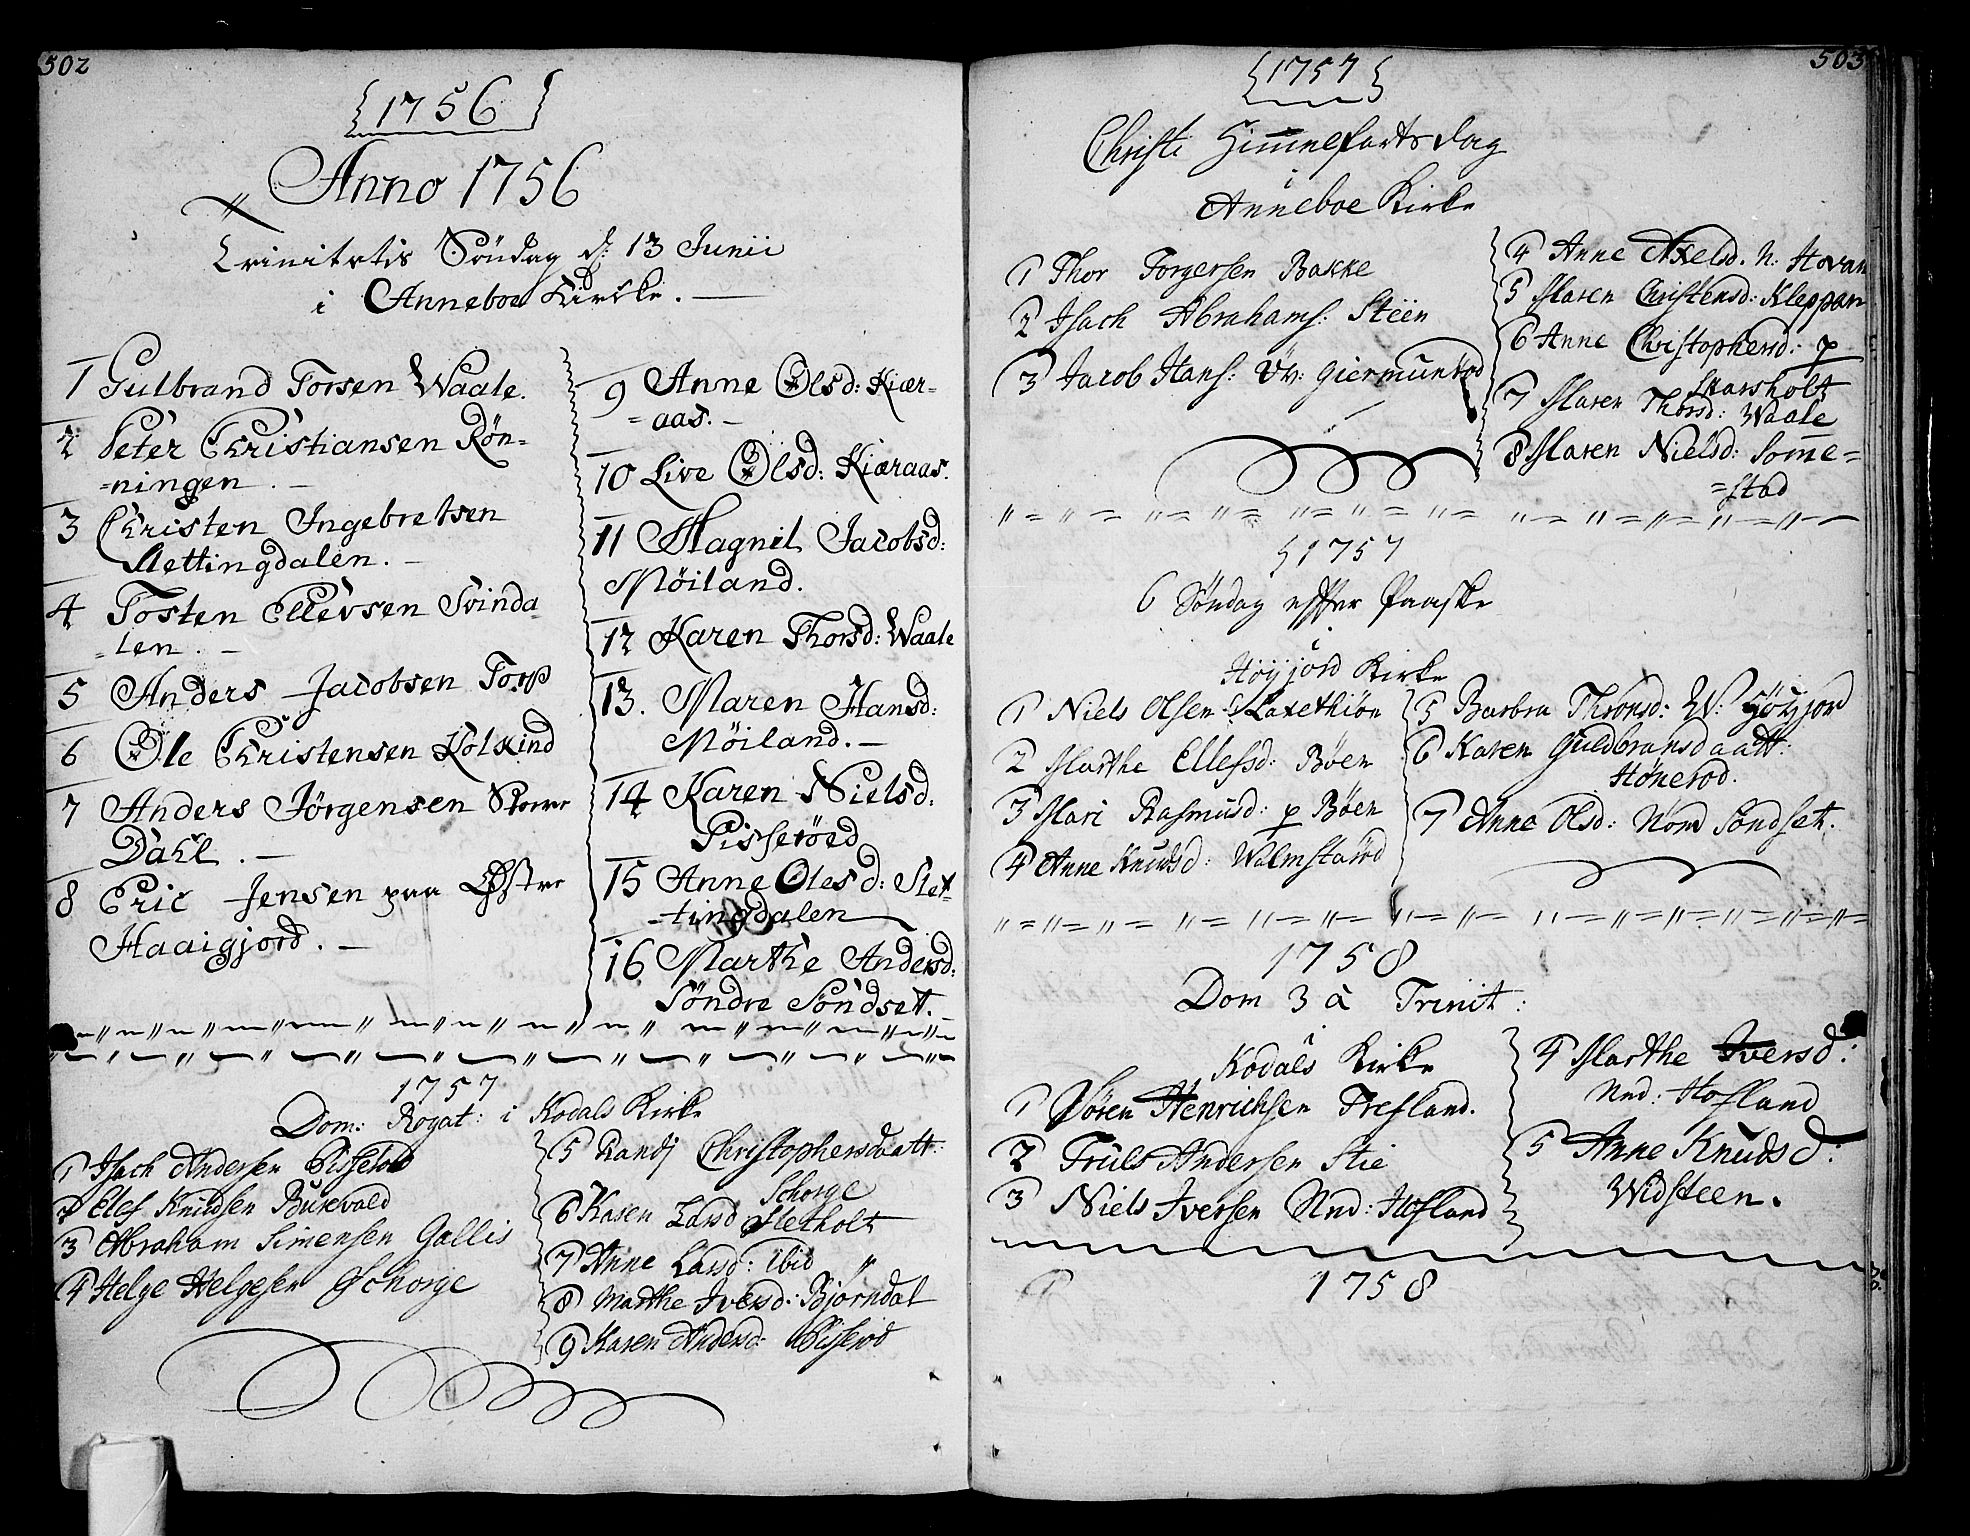 502
1756
Anno 1756
Trinitatis Söndag d: 13 Junii
i Anneboe Kirke.
1 Gulbrand Torsen Waale.
2 Peter Christiansen Rön=
=ningen.
3 Christen Ingebretsen
Slettingdalen.
4 Tosten Ellevsen Svinda
=len.
5 Anders Jacobsen Torp
6 Ole Christensen Kolkind
7 Anders Jörgensen Store
Dahl.
8 Eric Jensen paa Østre
Haaigjord.
9 Anne Olsd: Kiær=
=aas.
10 Live Olsd: Kiæraas.
11 Magnil Jacobsd:
Möiland.
12 Karen Thorsd: Waale
13. Maren Hansd:
Möiland.
14 Karen Nielsd:
Pisseröed
15 Anne Olesd: Slet=
=tingdalen
16 Marthe Andersd:
Söndre Söndset.
1757
Dom: Rogat: i Kodals Kirke
1 Isach Andersen Pisserod
2 Elef Knudsen Burevald
3 Abraham Simensen Gallis
4 Helge Helgesen Schorge
5 Randj Christophersdaatt:
Schorge
6 Karen Larsd: Sletholt
7 Anne Larsd: ibid
8 Marthe Iversd: Bjorndal
9 Karen Andersd: Pisserod
503
1757
Christi Himmelfarts dag
i
Anneboe Kirke
1 Thor Torgersen Bakke
2 Isach Abrahams: Steen
3 Jacob Hans: Öv: Giermundrod
4 Anne Axelsd. N: Hovan
5 Maren Christensd: Kleppan
6 Anne Christophersd: p
Skarsholt
7 Maren Thorsd: Waale
8 Maren Nielsd: Somme=
=stad
1757
6 Söndag effter Paaske
i
Høyjord Kirke
1 Niels Olsen Laxethiøn
2 Marthe Ellefsd: Bøen
3 Mari Rasmusd: p Bøen
4 Anne Knudsd: Walmstarød
5 Barbra Thronsd: W: Höyjord
6 Karen Guldbransdaatt:
Hönerod.
7 Anne Olsd: Nord Söndset.
1758
Dom 3 a Trinit:
i
Kodals Kirke
1 Sören Henrichsen Trefland.
2 Truls Andersen Stie
3 Niels Iversen Nnd: Hofland
4 Marthe Iversd:
Nnd: Hofland
5 Anne Knudsd:
Widsteen.
1
1758